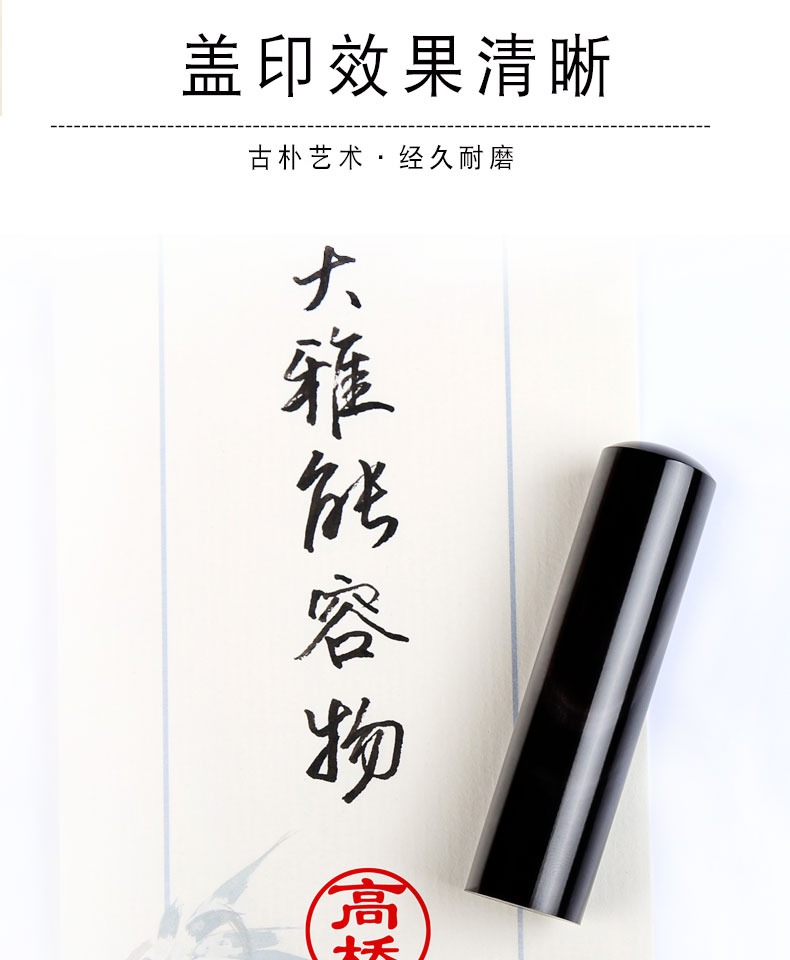 盖印效果清晰
古朴艺术·经久耐磨
大雅能容物
高桥